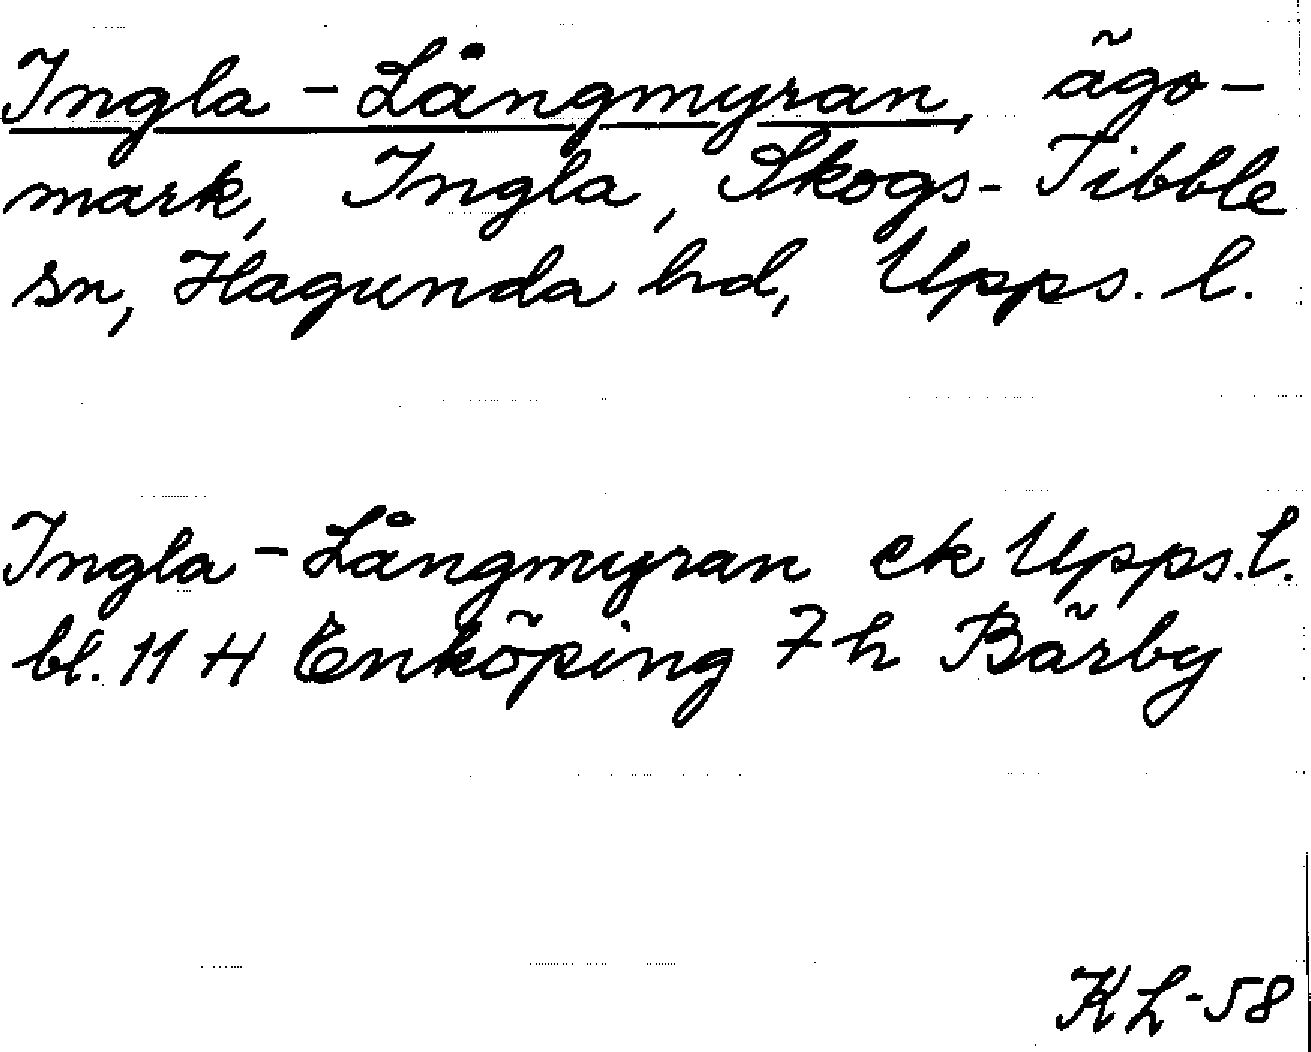 Ingla - Långmyran, ägo-
mark, Ingla, Skogs-Tibble
sn, Hagunda hd, Upps. l.
Ingla - Långmyran ek Upps. l.
bl. 11 H Enköping 7 h Bärby
KL-58